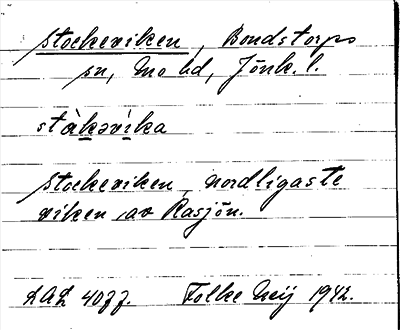 Stockeviken, Bondstorps
sn, Mo hd, Jönk. l.
stàkəvika
Stockeviken, nordligaste
viken av Rasjön.
LAL 4077. Folke Neij 1942.